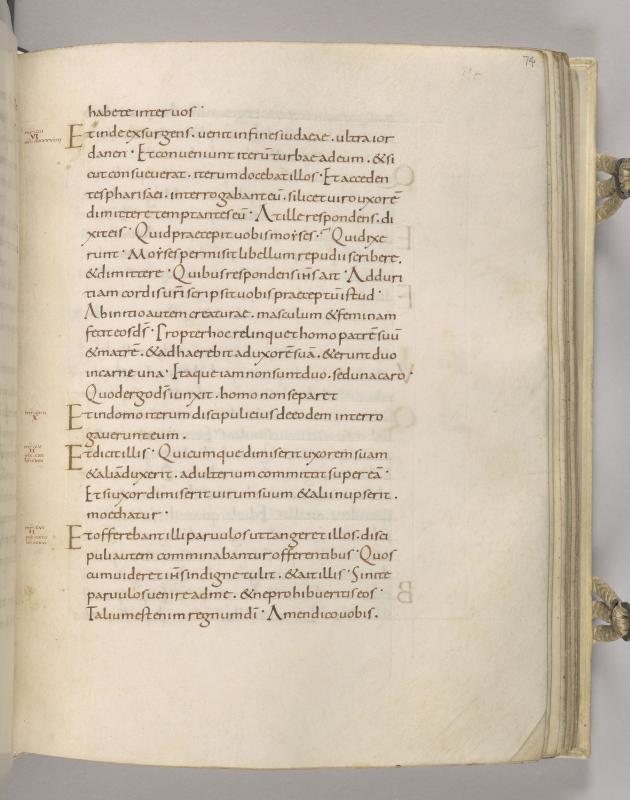 74
habete inter uos ·
Et inde exsurgens . uenit in fines iudaeae . ultra ior
danen · Et conueniunt iterū turbae ad eum . & si
cut consueuerat . iterum docebat illos · Et acceden
tes pharisaei . interrogabant eū . si licet uiro uxorē
dimittere temptantes eū · At ille respondens . di
xit eis · Quid praecepit uobis moyses · Qui dixe
runt · Moyses permisit libellum repudii scribere .
& dimittere · Quibus respondens ih̄s ait · Ad duri
tiam cordis ur̄i scripsit uobis praeceptū istud ·
Ab initio autem creaturae . masculum & feminam
fecit eos ds̄ · Propter hoc relinquet homo patrē suū
& matrē . & adhaerebit ad uxorē suā . & erunt duo
in carne una · Itaque iam non sunt duo . sed una caro ·
Quod ergo ds̄ iunxit . homo non separet
Et in domo iterum discipuli eius de eodem interro
gauerunt eum .
Et dicit illis · Quicumque dimiserit uxorem suam
& aliā duxerit . adulterium committit super eā ·
Et si uxor dimiserit uirum suum & alii nupserit .
moechatur ·
Et offerebant illi paruulos ut tangeret illos . disci
puli autem comminabantur offerentibus · Quos
cum uideret ih̄s indigne tulit . & ait illis · Sinite
paruulos uenire ad me . & ne prohibueritis eos ·
Talium est enim regnum dī · Amen dico uobis .